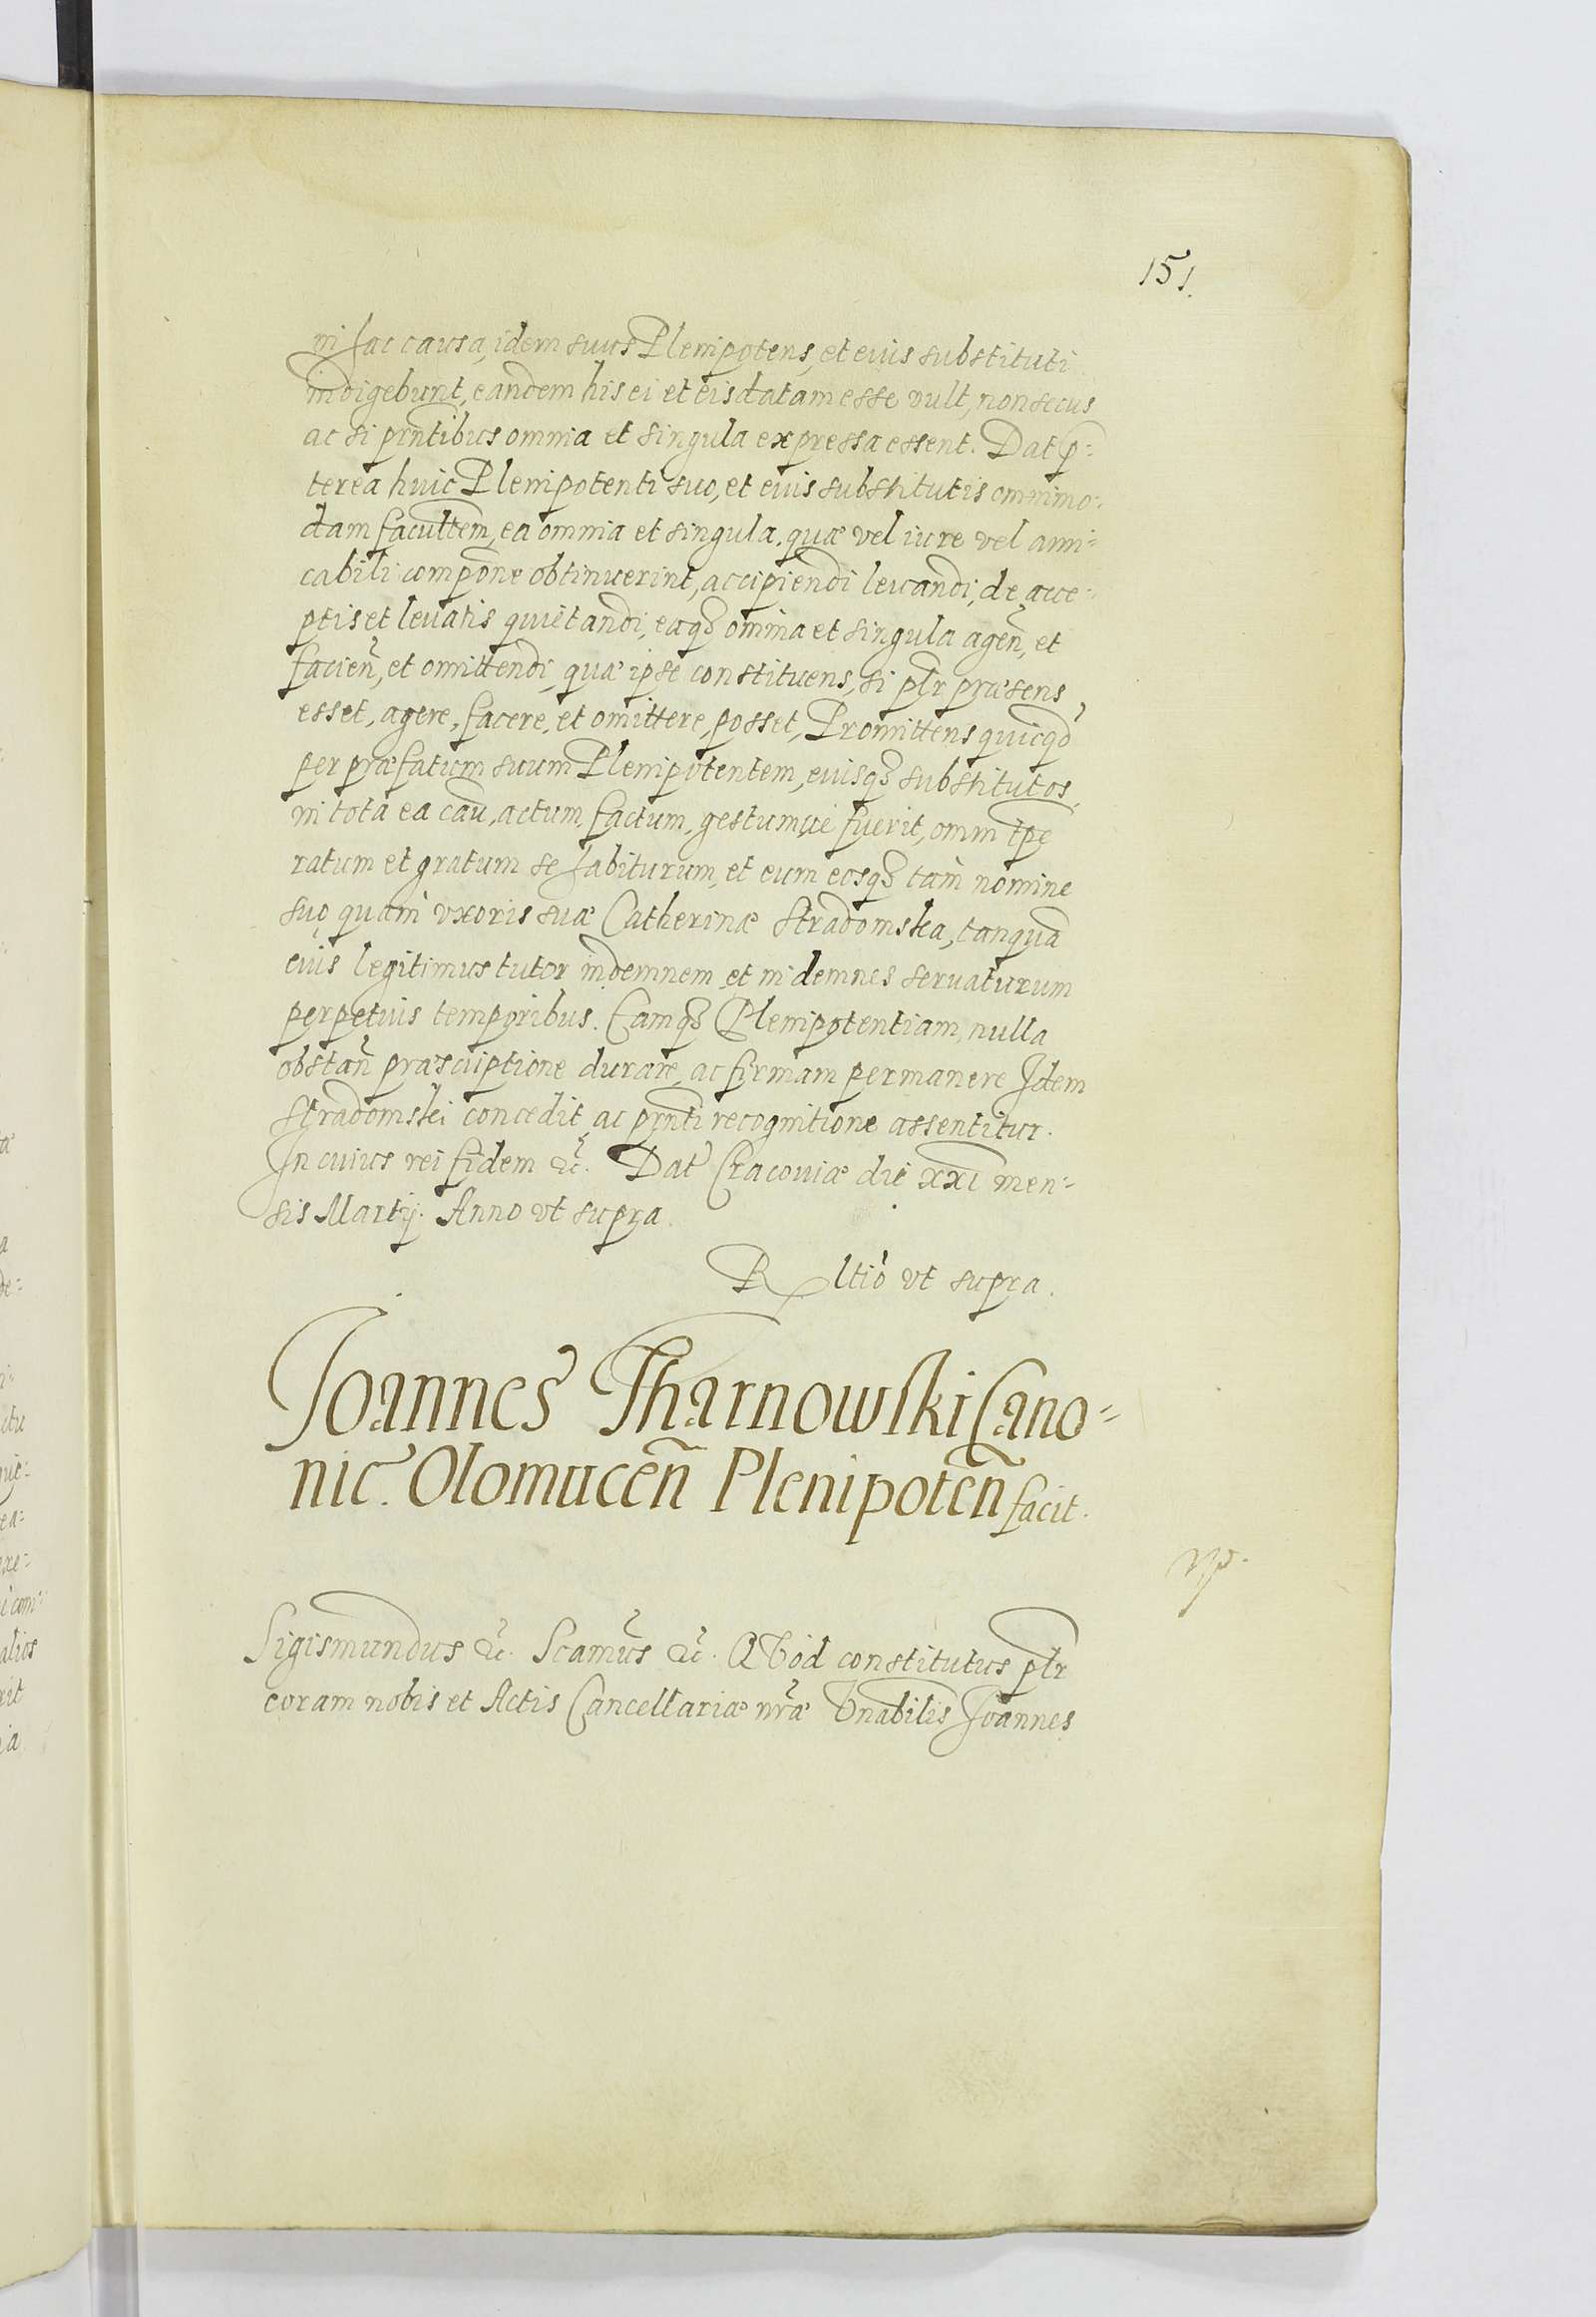 151.
in hac causa, idem suus Plenipotens, et eius substituti
indigebunt, eandem his ei et eis datam esse vult, non secus
ac si pr̃ntibus omnia et singula expressa essent. Dat p̱=
terea huic Plenipotenti suo, et eius substitutis omnimo=
dam facultem̃, ea omnia et singula, quæ vel iure vel ami=
cabili compõne obtinuerint, accipiendi levandi, de acce=
ptis et levatis quietandi, eaqȝ omnia et singula agen̄, et
facien̄, et omittendi, quæ ipse constituens, si pl̃r præsens
esset, agere, facere, et omittere, posset, Promittens quicqd̃
per præfatum suum Plenipotentem, eiusqȝ substitutos,
in tota ea caũ, actum, factum, gestumúe fuerit, omni tp̃e
ratum et gratum se habiturum, et eum eosqȝ tam nomine
suo, quam vxoris suæ Catherinæ Stradomska, tanquã
eius legitimus tutor indemnem et indemnes seruaturum
perpetuis temporibus. Eamqȝ Plenipotentiam, nulla
obstan̄ præscriptione durare, ac firmam permanere Idem
Stradomski concedit, ac pr̃nti recognitione assentitur.
In cuius rei fidem &c̃. Dat̃ Cracouiæ die xxi men=
sis Martij. Anno vt supra.
R ltio vt supra.
Joannes Tharnowski Cano=
nic. Olomucen̄ Plenipoten̄ facit.
Sigismundus &c̃. Scamũs &c̃. QVod constitutus pl̃r
coram nobis et Actis Cancellariæ nr̃æ Vnabilis Joannes